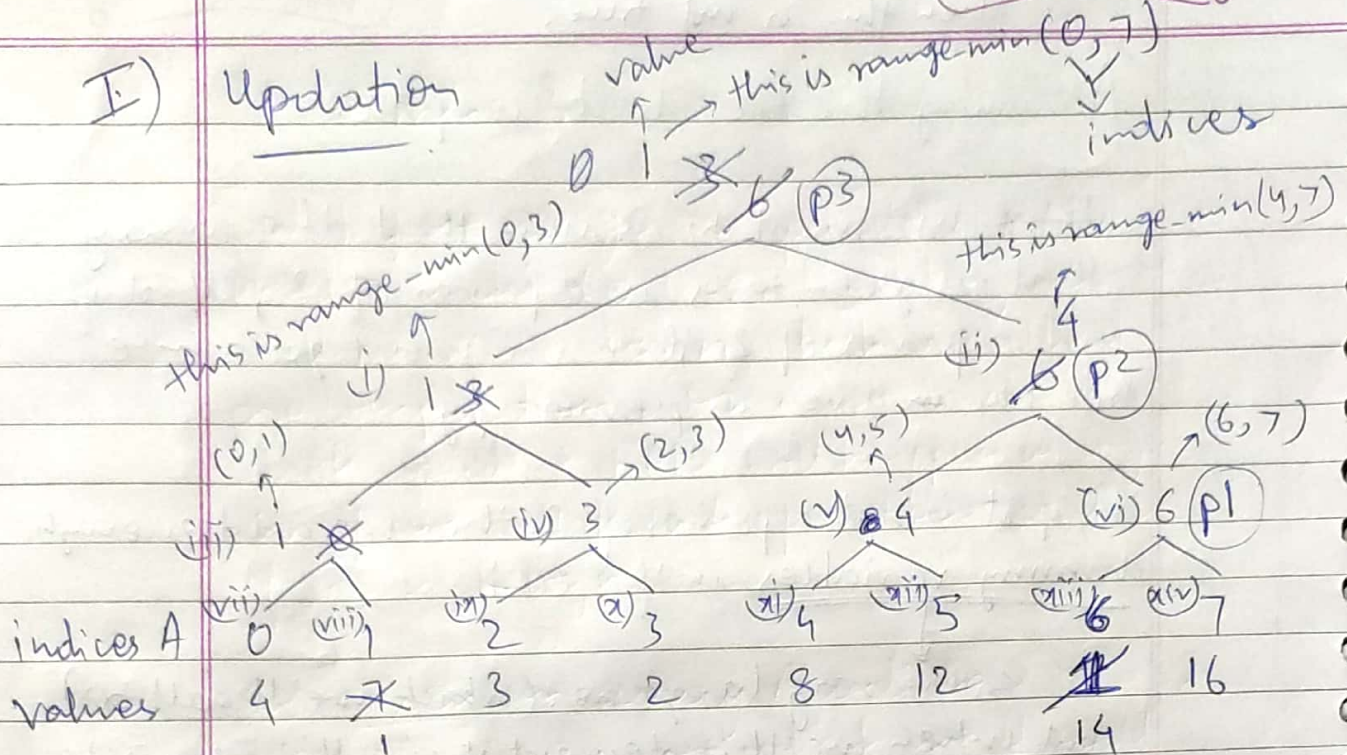 I) Updation
value
this is range-min(0,7)
indices
0 1 3 6 p3
this is range-min(0,3)
this is range-min(4,7)
(i) 1 3
(ii) 4 6 p2
(0,1) (2,3) (4,5) (6,7)
(iii) 1 (iv) 3 (v) 4 (vi) 6 p1
(vii) (viii) (ix) (x) (xi) (xii) (xiii) (xiv)
indices A 0 1 2 3 4 5 6 7
values 4 7 3 2 8 12 16
1 14